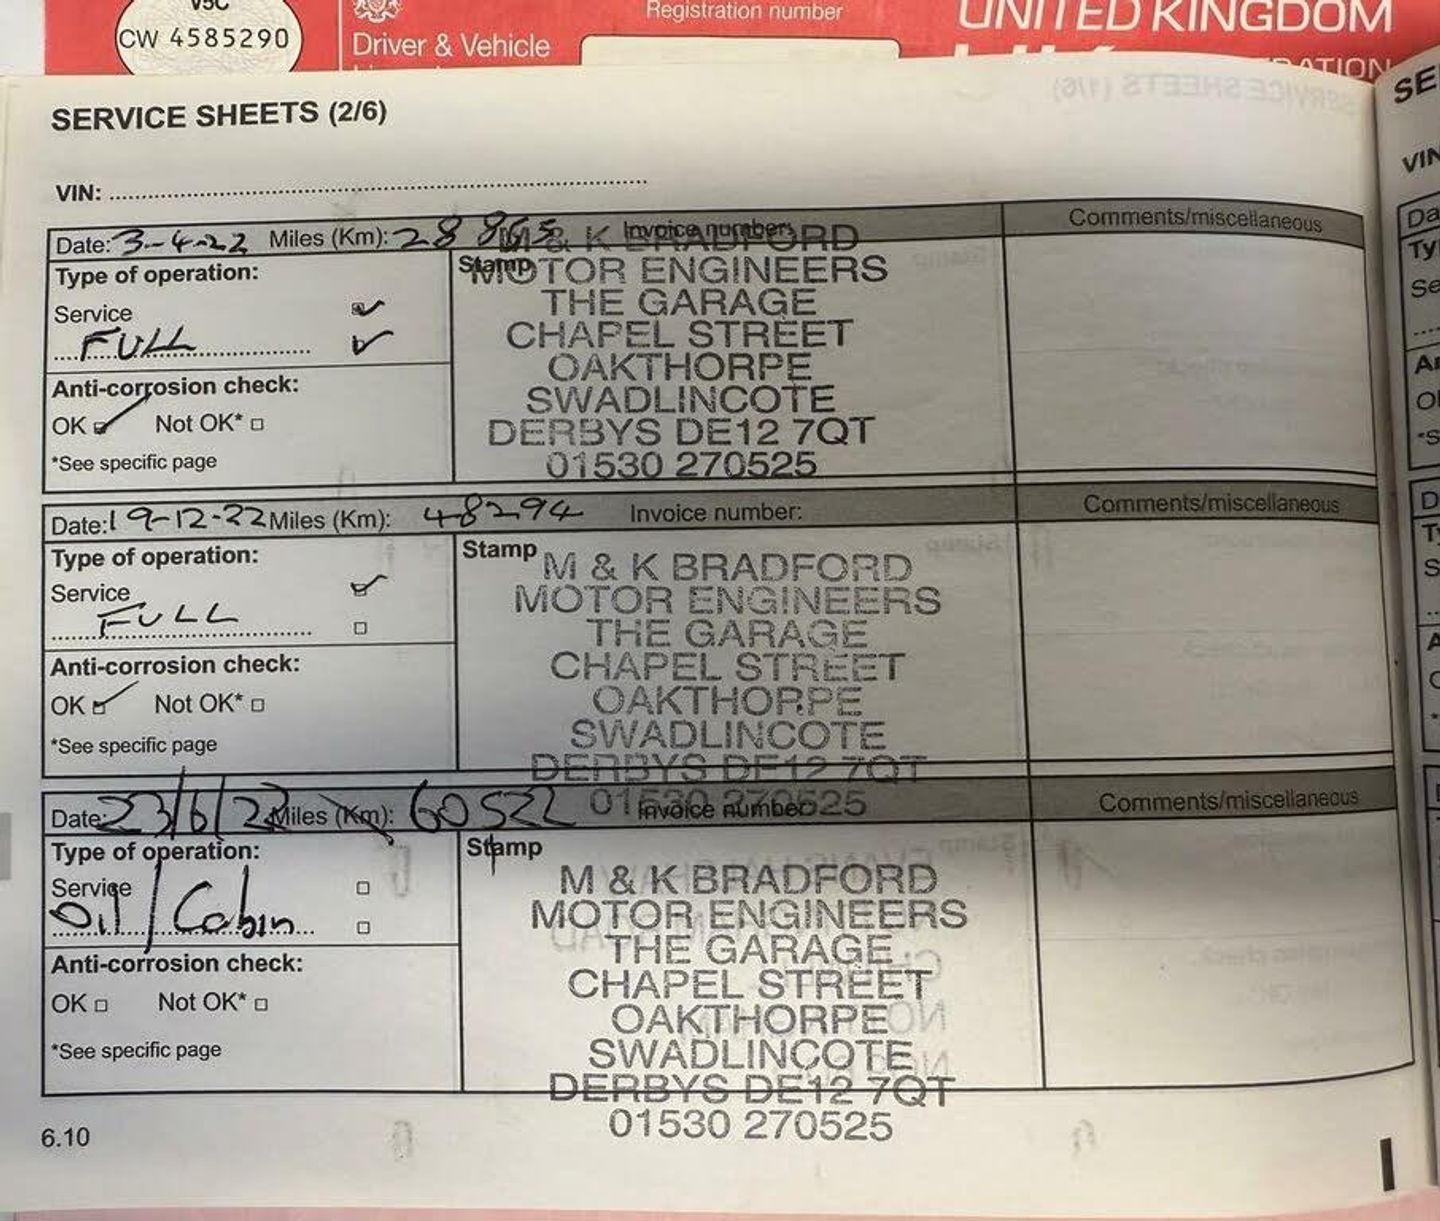 V5C
CW 4585290
Driver & Vehicle
Registration number
UNITED KINGDOM
SERVICE SHEETS (2/6)
VIN:
Date: 3-4-22 Miles (Km): 28 865 Invoice number:
Comments/miscellaneous
Type of operation:
Service
FULL
Anti-corrosion check:
OK Not OK*
*See specific page
Stamp
M & K BRADFORD
MOTOR ENGINEERS
THE GARAGE
CHAPEL STREET
OAKTHORPE
SWADLINCOTE
DERBYS DE12 7QT
01530 270525
Date: 19-12-22 Miles (Km): 48294 Invoice number:
Comments/miscellaneous
Type of operation:
Service
FULL
Anti-corrosion check:
OK Not OK*
*See specific page
Stamp
M & K BRADFORD
MOTOR ENGINEERS
THE GARAGE
CHAPEL STREET
OAKTHORPE
SWADLINCOTE
DERBYS DE12 7QT
01530 270525
Date: Miles (Km): 60522 Invoice number:
Comments/miscellaneous
Type of operation:
Service
Oil / Cabin
Anti-corrosion check:
OK Not OK*
*See specific page
Stamp
M & K BRADFORD
MOTOR ENGINEERS
THE GARAGE
CHAPEL STREET
OAKTHORPE
SWADLINCOTE
DERBYS DE12 7QT
01530 270525
6.10